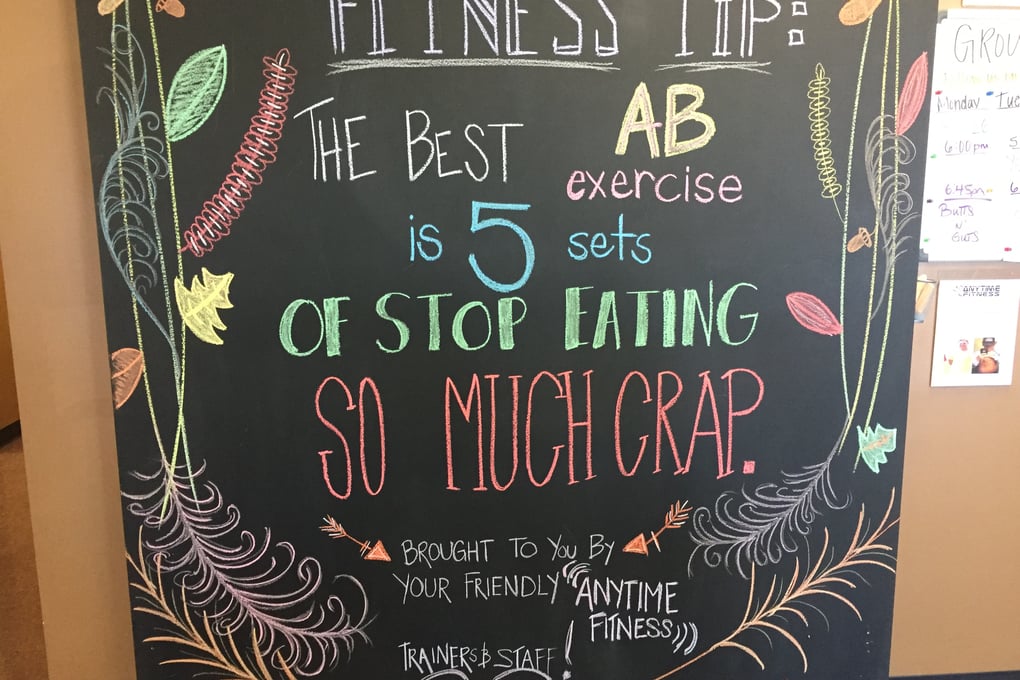 FITNESS TIP:
THE BEST AB
exercise
is 5 sets
OF STOP EATING
SO MUCH CRAP.
BROUGHT TO YOU BY
YOUR FRIENDLY ANYTIME
FITNESS
TRAINERS & STAFF!
GROU
Monday Tue
6:00pm
6:45pm
BUTTS
N'
GUTS
ANYTIME
FITNESS